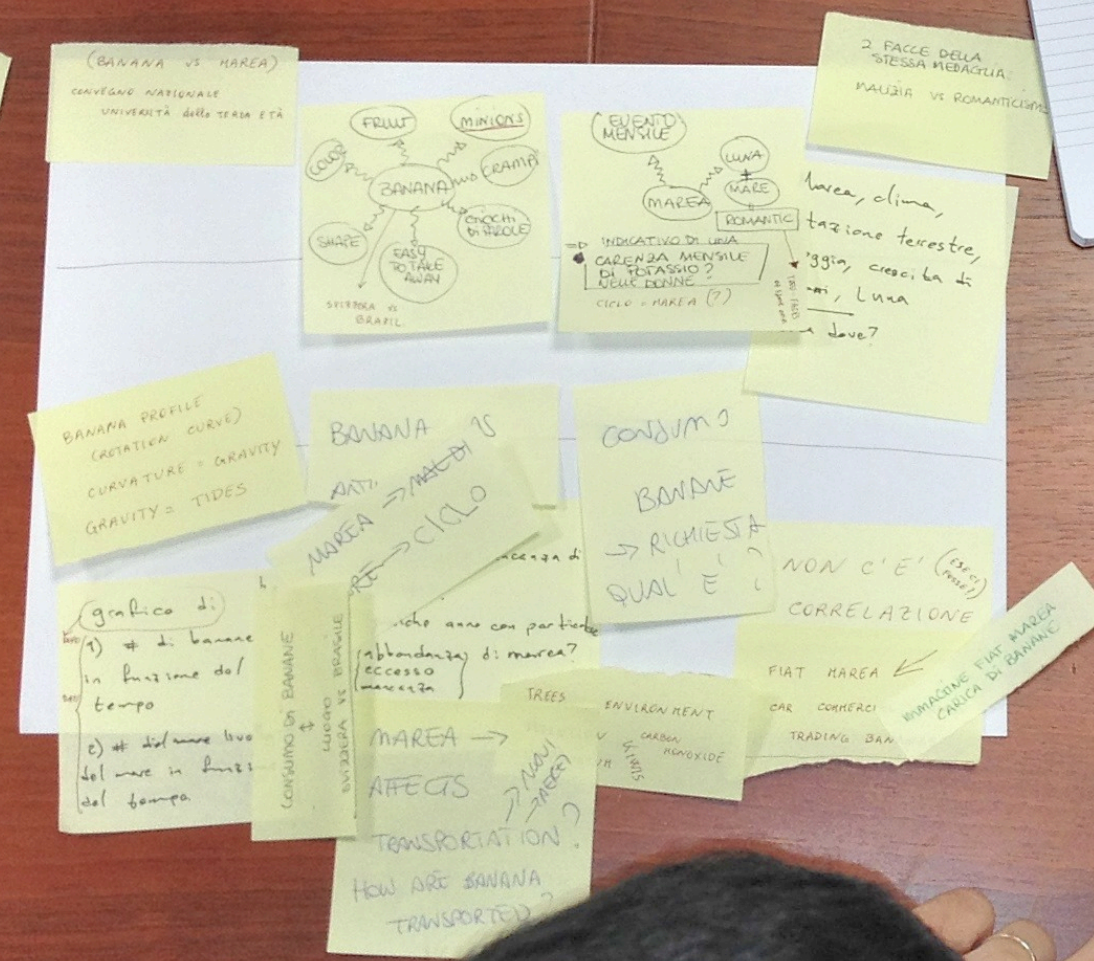 (BANANA VS MAREA)
CONVEGNO NAZIONALE
UNIVERSITÀ della TERZA ETÀ
FRUIT
MINIONS
COLOR
CRAMPI
BANANA
SHAPE
GIOCHI
DI PAROLE
EASY
TO TAKE
AWAY
SVIZZERA VS
BRASIL
EVENTO
MENSILE
LUNA
+
MARE
MAREA
ROMANTIC
INDICATIVO DI UNA
CARENZA MENSILE
DI POTASSIO?
NELLE DONNE?
CICLO = MAREA (?)
2 FACCE DELLA
STESSA MEDAGLIA:
MALIZIA VS ROMANTICISM
Marea, clima,
tazione terrestre,
ggia, crescita di
, Luna
dove?
BANANA PROFILE
(ROTATION CURVE)
CURVATURE = GRAVITY
GRAVITY = TIDES
BANANA
ANTI
VS
MAREA → MAL DI
→ CICLO
CONSUMO
BANANE
→ RICHIESTA
QUAL' E' ?
NON C'E' (E SE CI FOSSE?)
CORRELAZIONE
grafico di
1) # di banane
in funzione del
tempo
2) # del mare live
del mare in funzi
del tempo
CONSUMO DI BANANE
↕
LUOGO
SVIZZERA VS BRASILE
canza di
che anno con particolare
abbondanza
eccesso
mancanza
di marea?
TREES
ENVIRONMENT
CARBON
MONOXIDE
FIAT MAREA
CAR COMMERCI
TRADING BAN
IMMAGINE FIAT MAREA
CARICA DI BANANE
MAREA →
AFFECTS
TRANSPORTATION?
→ NAVI
→ AEREI
HOW ARE BANANA
TRANSPORTED?